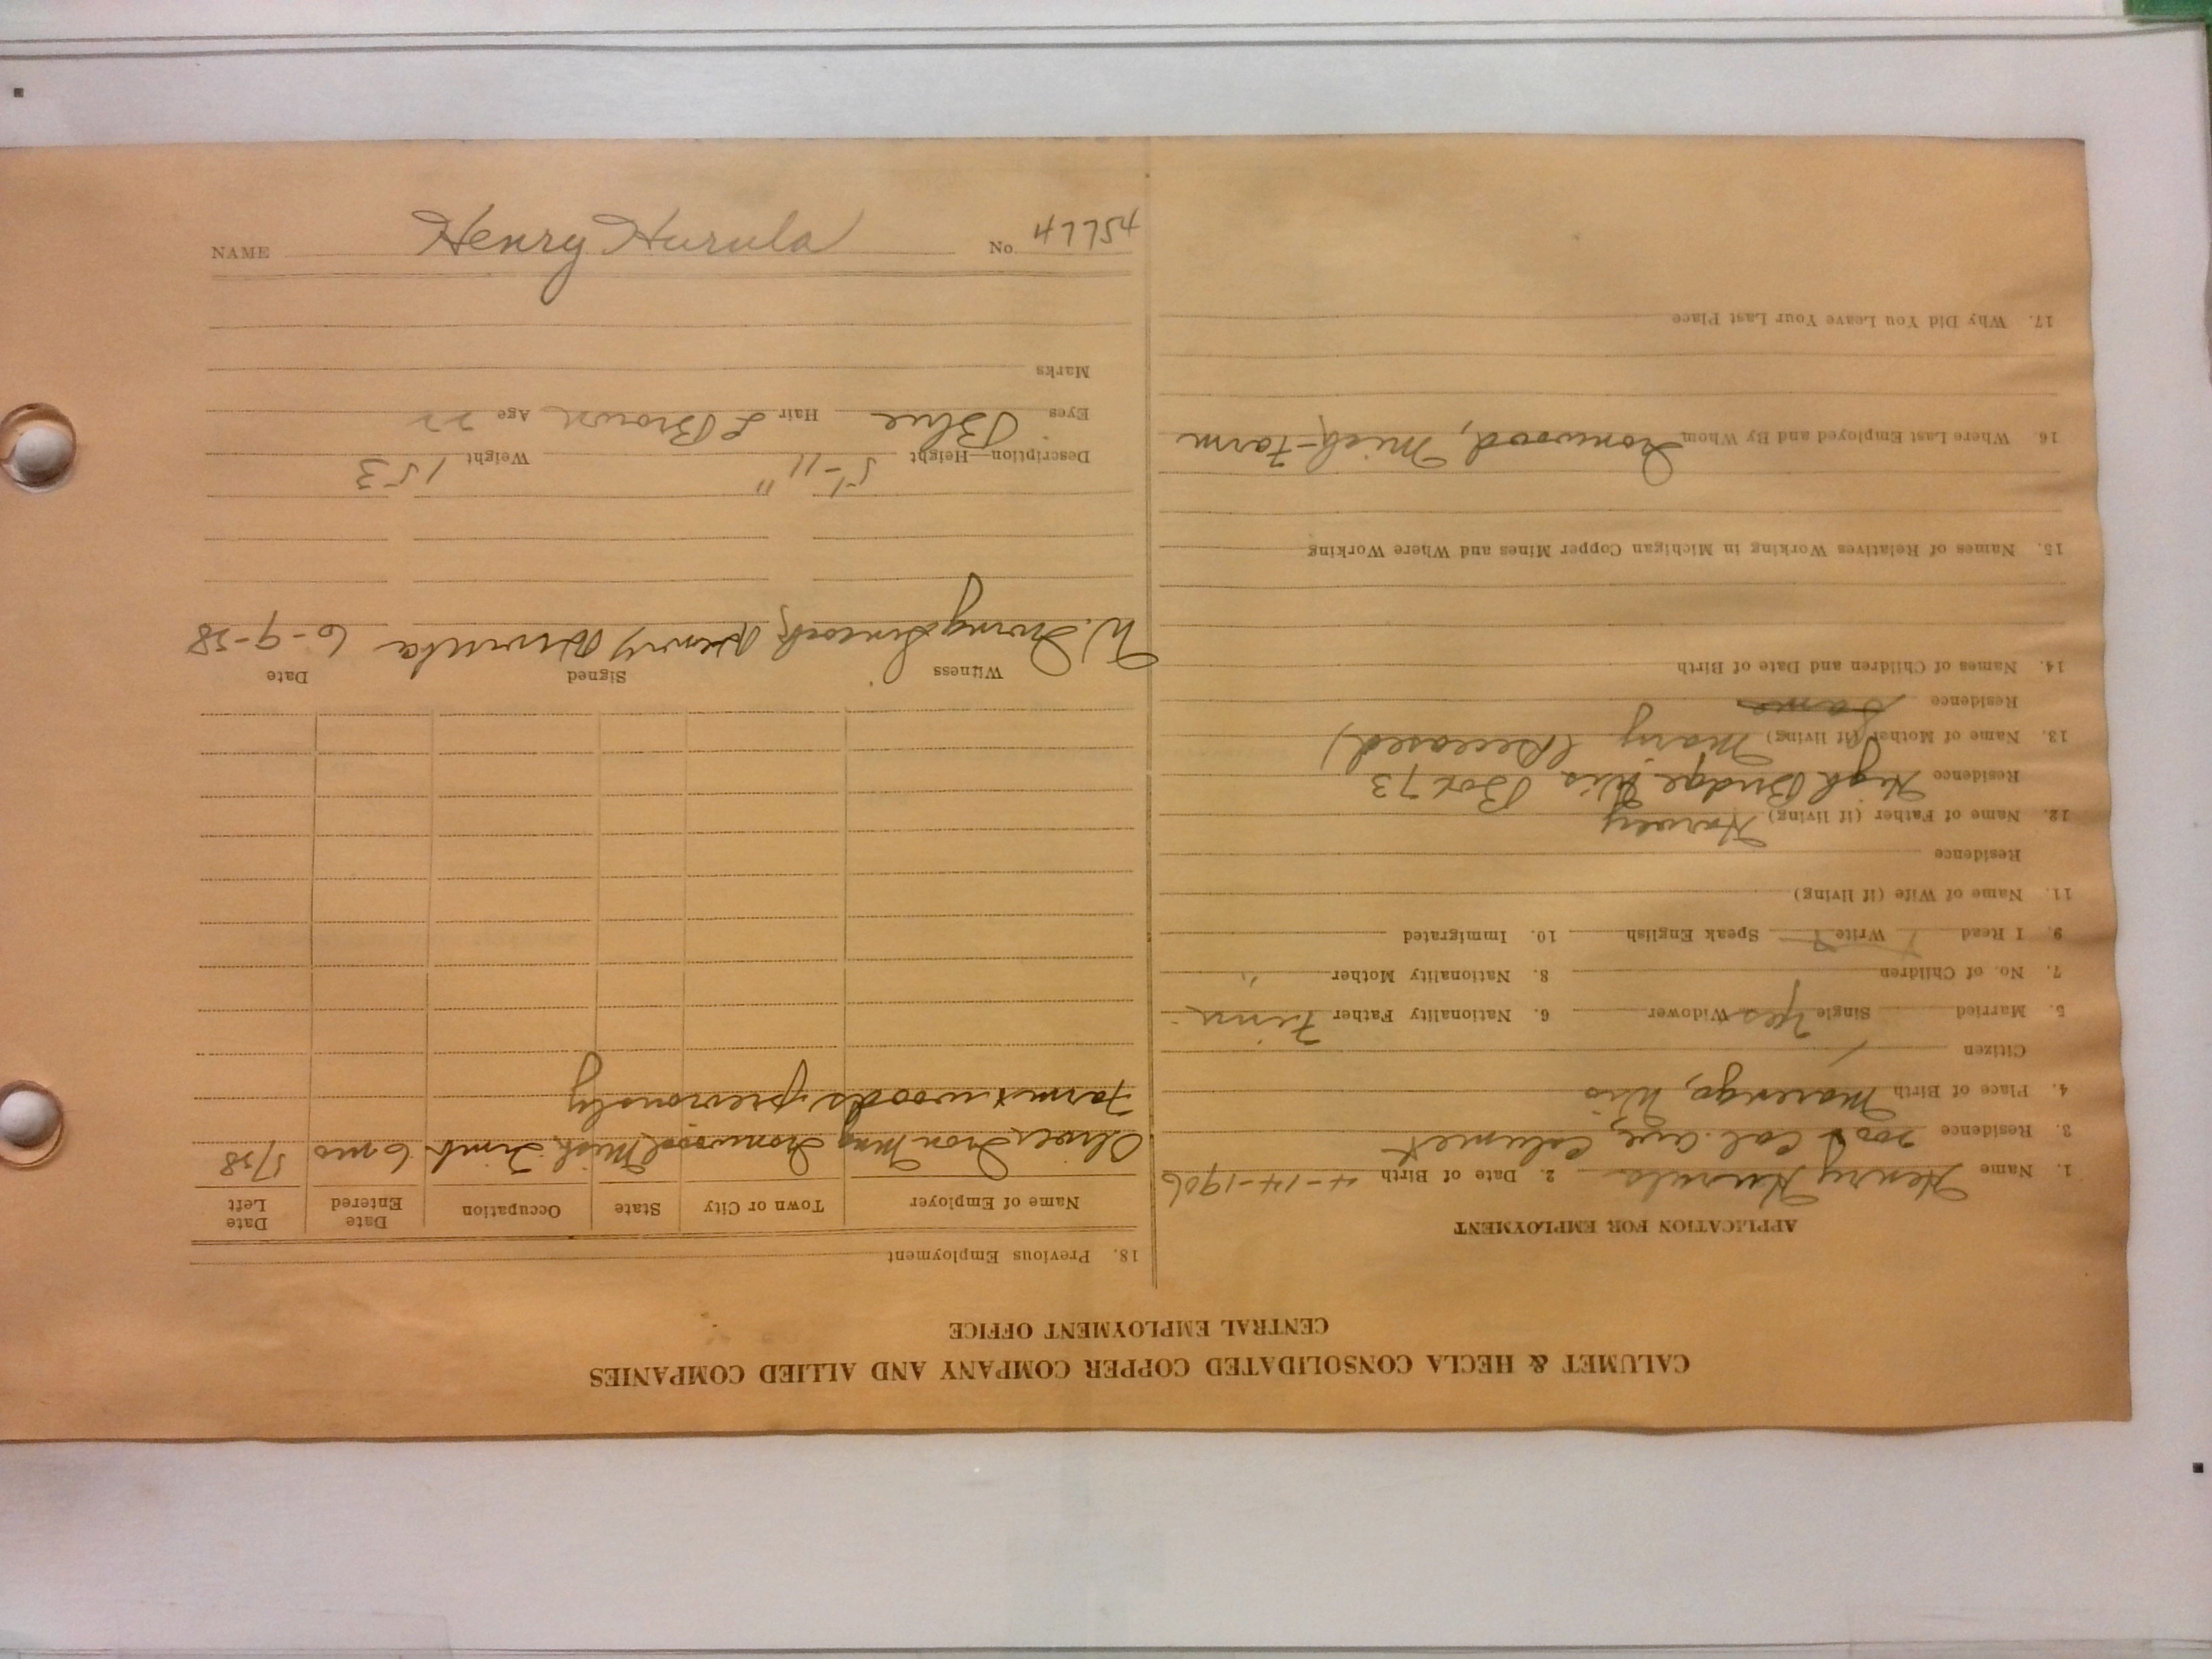 CALUMET & HECLA CONSOLIDATED COPPER COMPANY AND ALLIED COMPANIES
CENTRAL EMPLOYMENT OFFICE
APPLICATION FOR EMPLOYMENT
1. Name Henry Hurula 2. Date of Birth 4-14-1906
3. Residence Cal. ave, Calumet
4. Place of Birth Marengo, Wis
Citizen /
5. Married Single Yes Widower 6. Nationality Father Finn
7. No. of Children 8. Nationality Mother "
9. I Read Write Speak English 10. Immigrated
11. Name of Wife (if living)
Residence
12. Name of Father (if living) Harvey
Residence High Bridge Wis Box 73
13. Name of Mother (if living) Mary (Deceased)
Residence Same
14. Names of Children and Date of Birth
15. Names of Relatives Working in Michigan Copper Mines and Where Working
16. Where Last Employed and By Whom Ironwood, Mich - Farm
17. Why Did You Leave Your Last Place
18. Previous Employment
Name of Employer Town or City State Occupation Date Entered Date Left
Oliver Iron Mng Ironwood Mich 6 mo
Farm & woods previously
Witness Signed Date
W. Irving Henry Hurula
Description—Height 5'-11" Weight 153
Eyes Blue Hair L Brown Age 22
Marks
NAME Henry Hurula No.